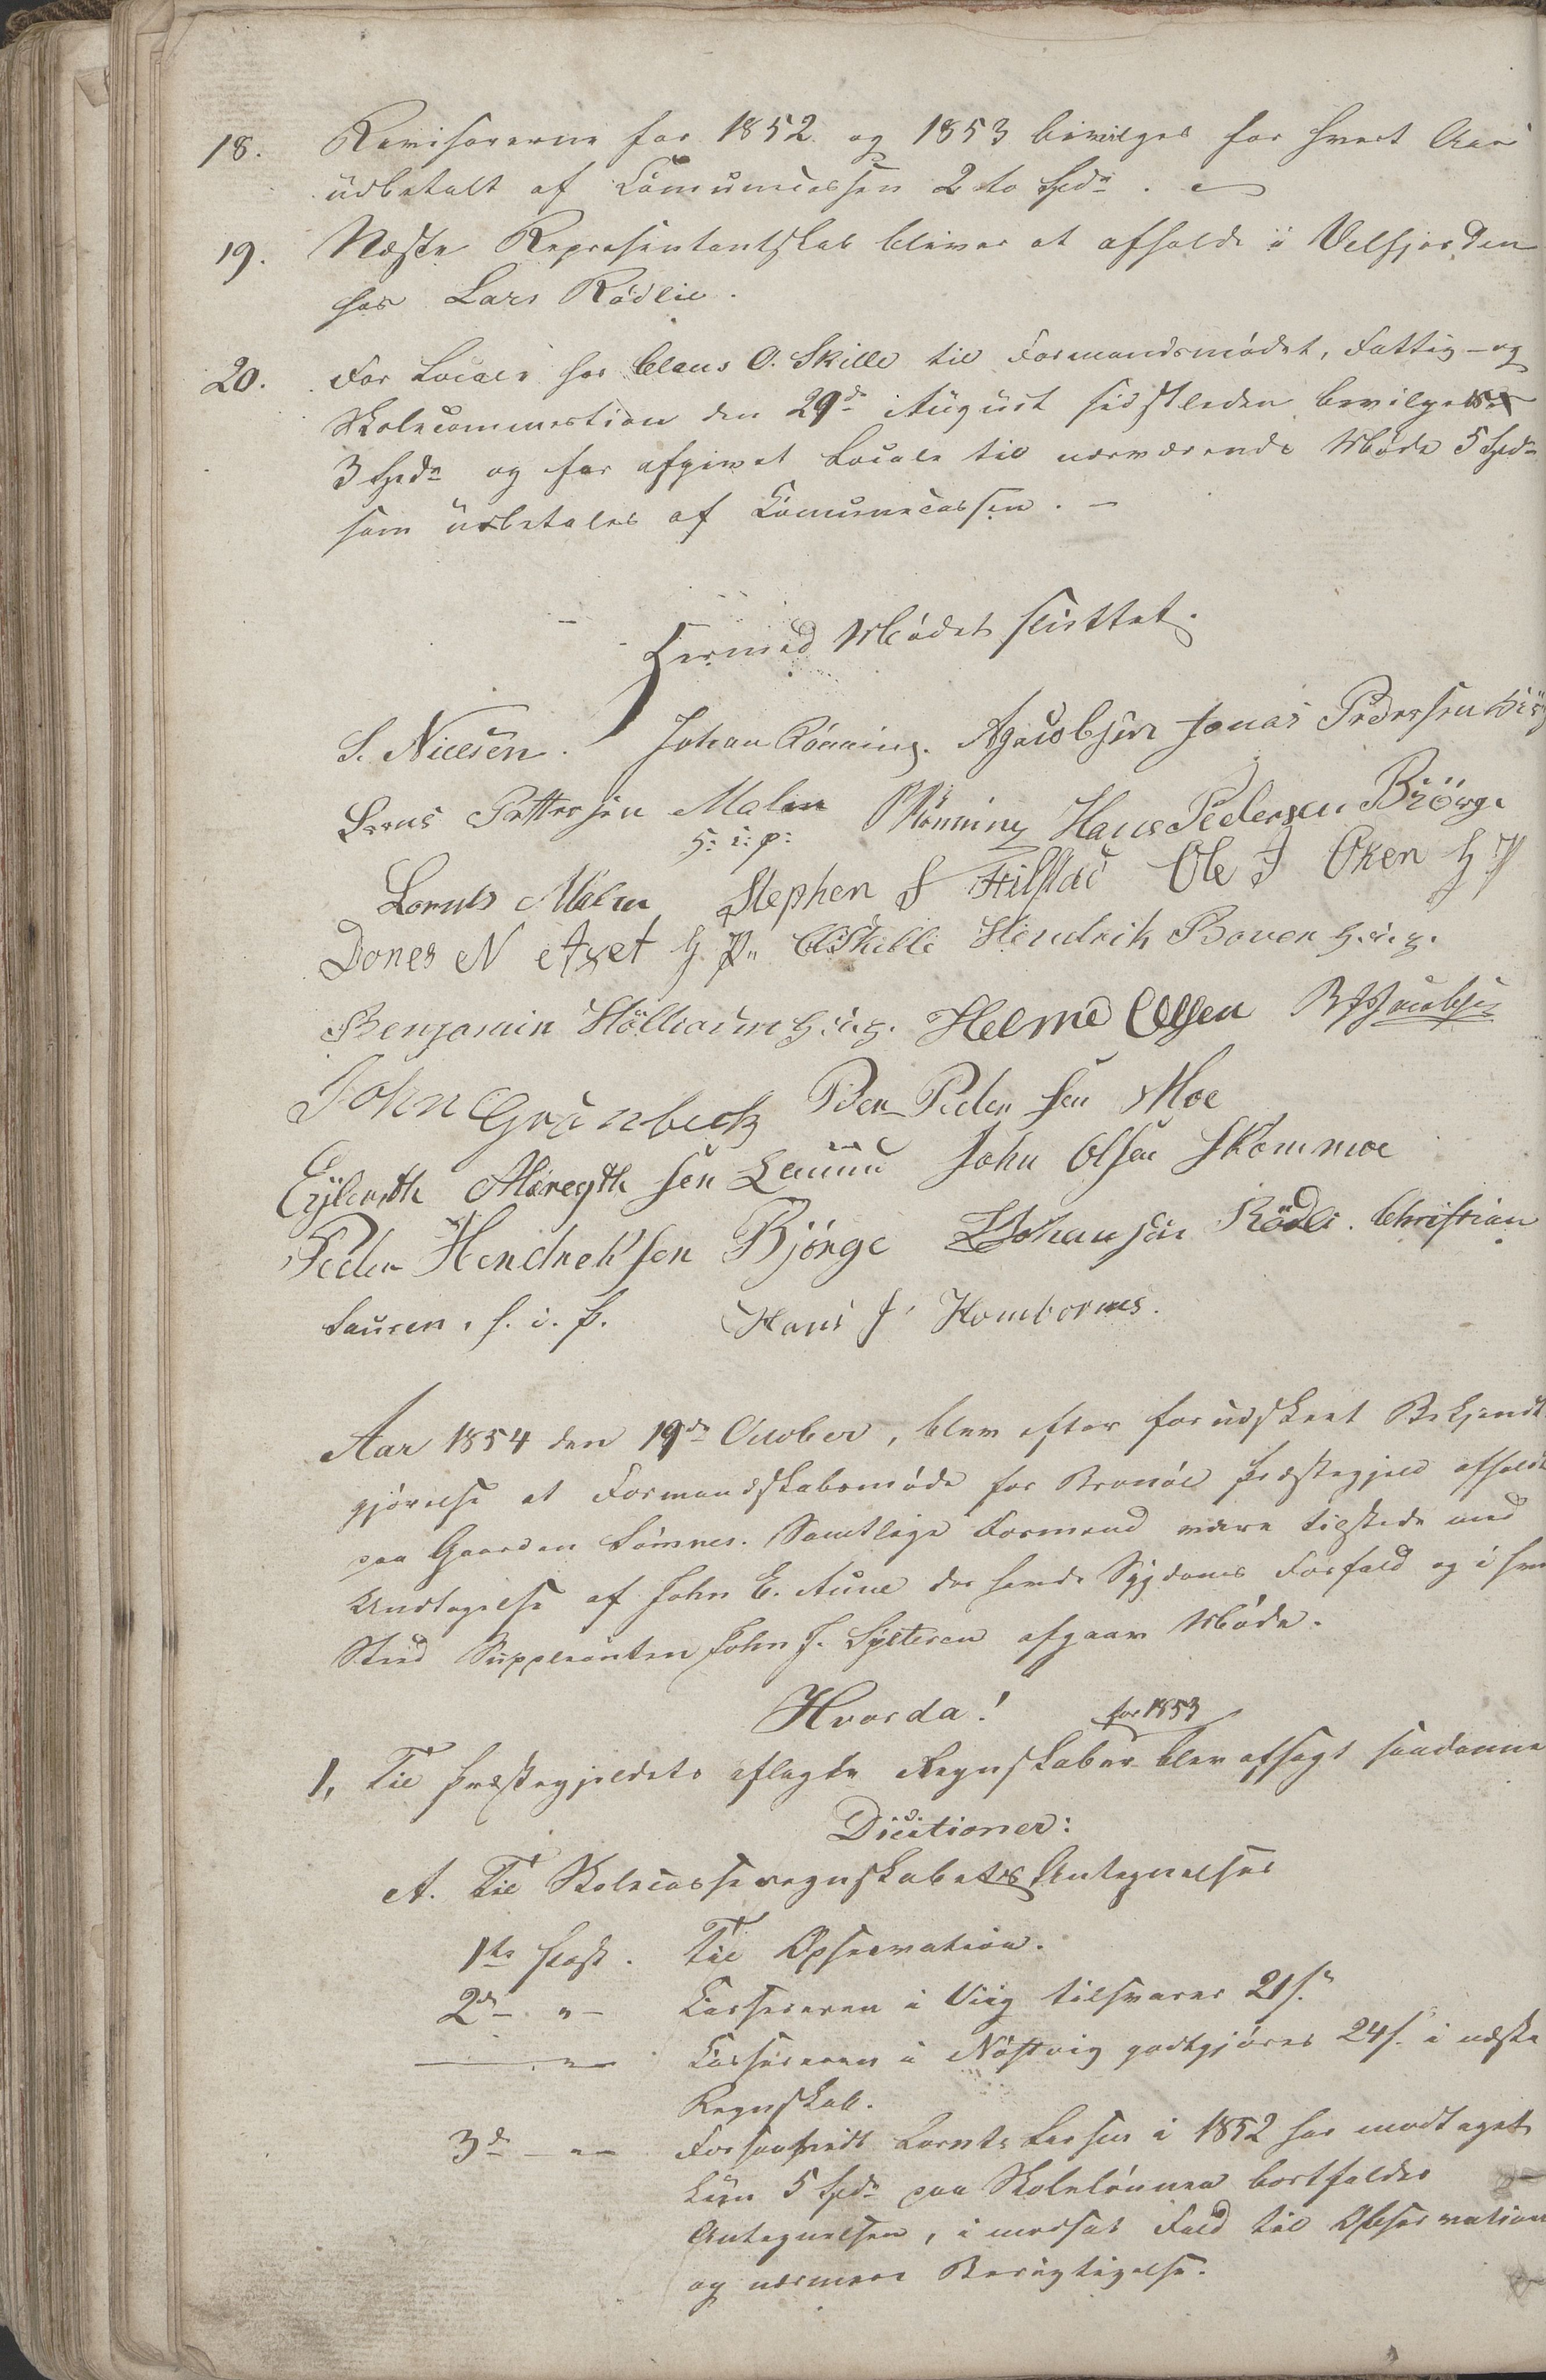 18. Revisorerne for 1852 og 1853 bevilges for hvert Aar
udbetalt af Communecassen 2 to Spd.
19. Næste Repræsentantskab bliver at afholde i Velfjorden
hos Lars Rödlie.
20. For Locale hos Claus O. Skille til Formandsmödet, Fattig- og
Skolecommission den 29de August sidstleden bevilges
3 Spd og for afgivet Locale til nærværende Möde 5 Spd
som udbetales af Communecassen. -
Hermed Mödet sluttet.
S. Nielsen. Johan Rönning. A Jacobsen Jonas Pedersen
Petersen Malm Rönning Hans Pedersen Biörge
h: i: p:
Lornts Malm Stephen S Hilstad Ole J Oken h P
Dones N Axet h. P. C Skille Hendrik Boven h. i. p.
Benjamin h. i. p. Helme Olsen Jacobsen
John Grönbeck Per Pedersen Moe
John Olsen Skommoe
Peder Hendriksen Björge L Johansen Rödli. Christian
Lausen. h. i. p. Hans J Hombornes.
Aar 1854 den 19de October, blev efter forudskeet Bekjendt
gjörelse et Formandskabsmöde for Brönöe Præstegjeld afholdt
paa Gaarden Sömnes. Samtlige Formænd vare tilstede med
Undtagelse af John E. Aune der havde Sygdoms Forfald og i hvis
Sted Suppleanten John J. Sylteren afgav Möde.
Hvorda!
for 1853
1, Til Præstegjeldets aflagte Regnskaber blev afsagt saadanne
Decitioner:
A. Til Skolecasseregnskabets Antegnelser
1te Post. Til Opservation.
2den " - Cassereren i Viig tilsvarer 21 s.
" Cassereren i Nöstvig godtgjöres 24 s. i næste
Regnskab.
3de - " - Forsaavidt Lornts Larsen i 1852 har modtaget
kun 5 Spd paa Skolelönnen bortfalder
Antegnelsen, i modsat Fald til Observation
og nærmere Berigtigelse.